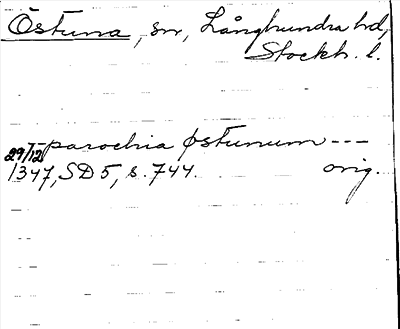 Östuna, sn, Långhundra hd,
Stockh. l.
--parochia østunum ---
29/12
1347, SD 5, s. 744. orig.